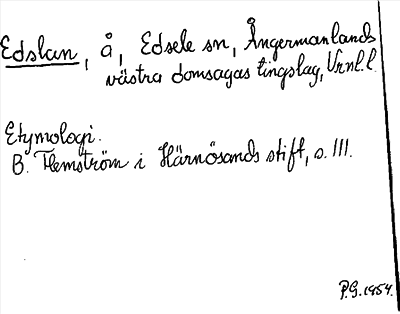 Edslan, å, Edsele sn, Ångermanlands
västra domsagas tingslag, Vrnl.l.
Etymologi.
B. Flemström i Härnösands stift, s. 111.
P.G. 1954.